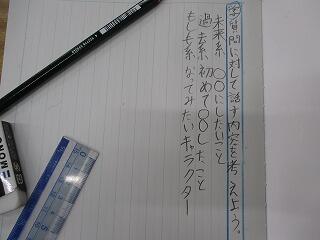 学質問に対して話す内容を考えよう。
未来系 〇〇にしたいこと
過去系 初めて〇〇したこと
もしも系 なってみたいキャラクター
MONO